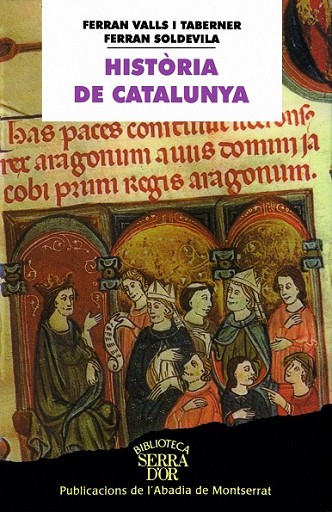 FERRAN VALLS I TABERNER
FERRAN SOLDEVILA
HISTÒRIA
DE CATALUNYA
rex aragonum auus domini ja
cobi primi regis aragonum.
BIBLIOTECA
SERRA
D'OR
Publicacions de l'Abadia de Montserrat